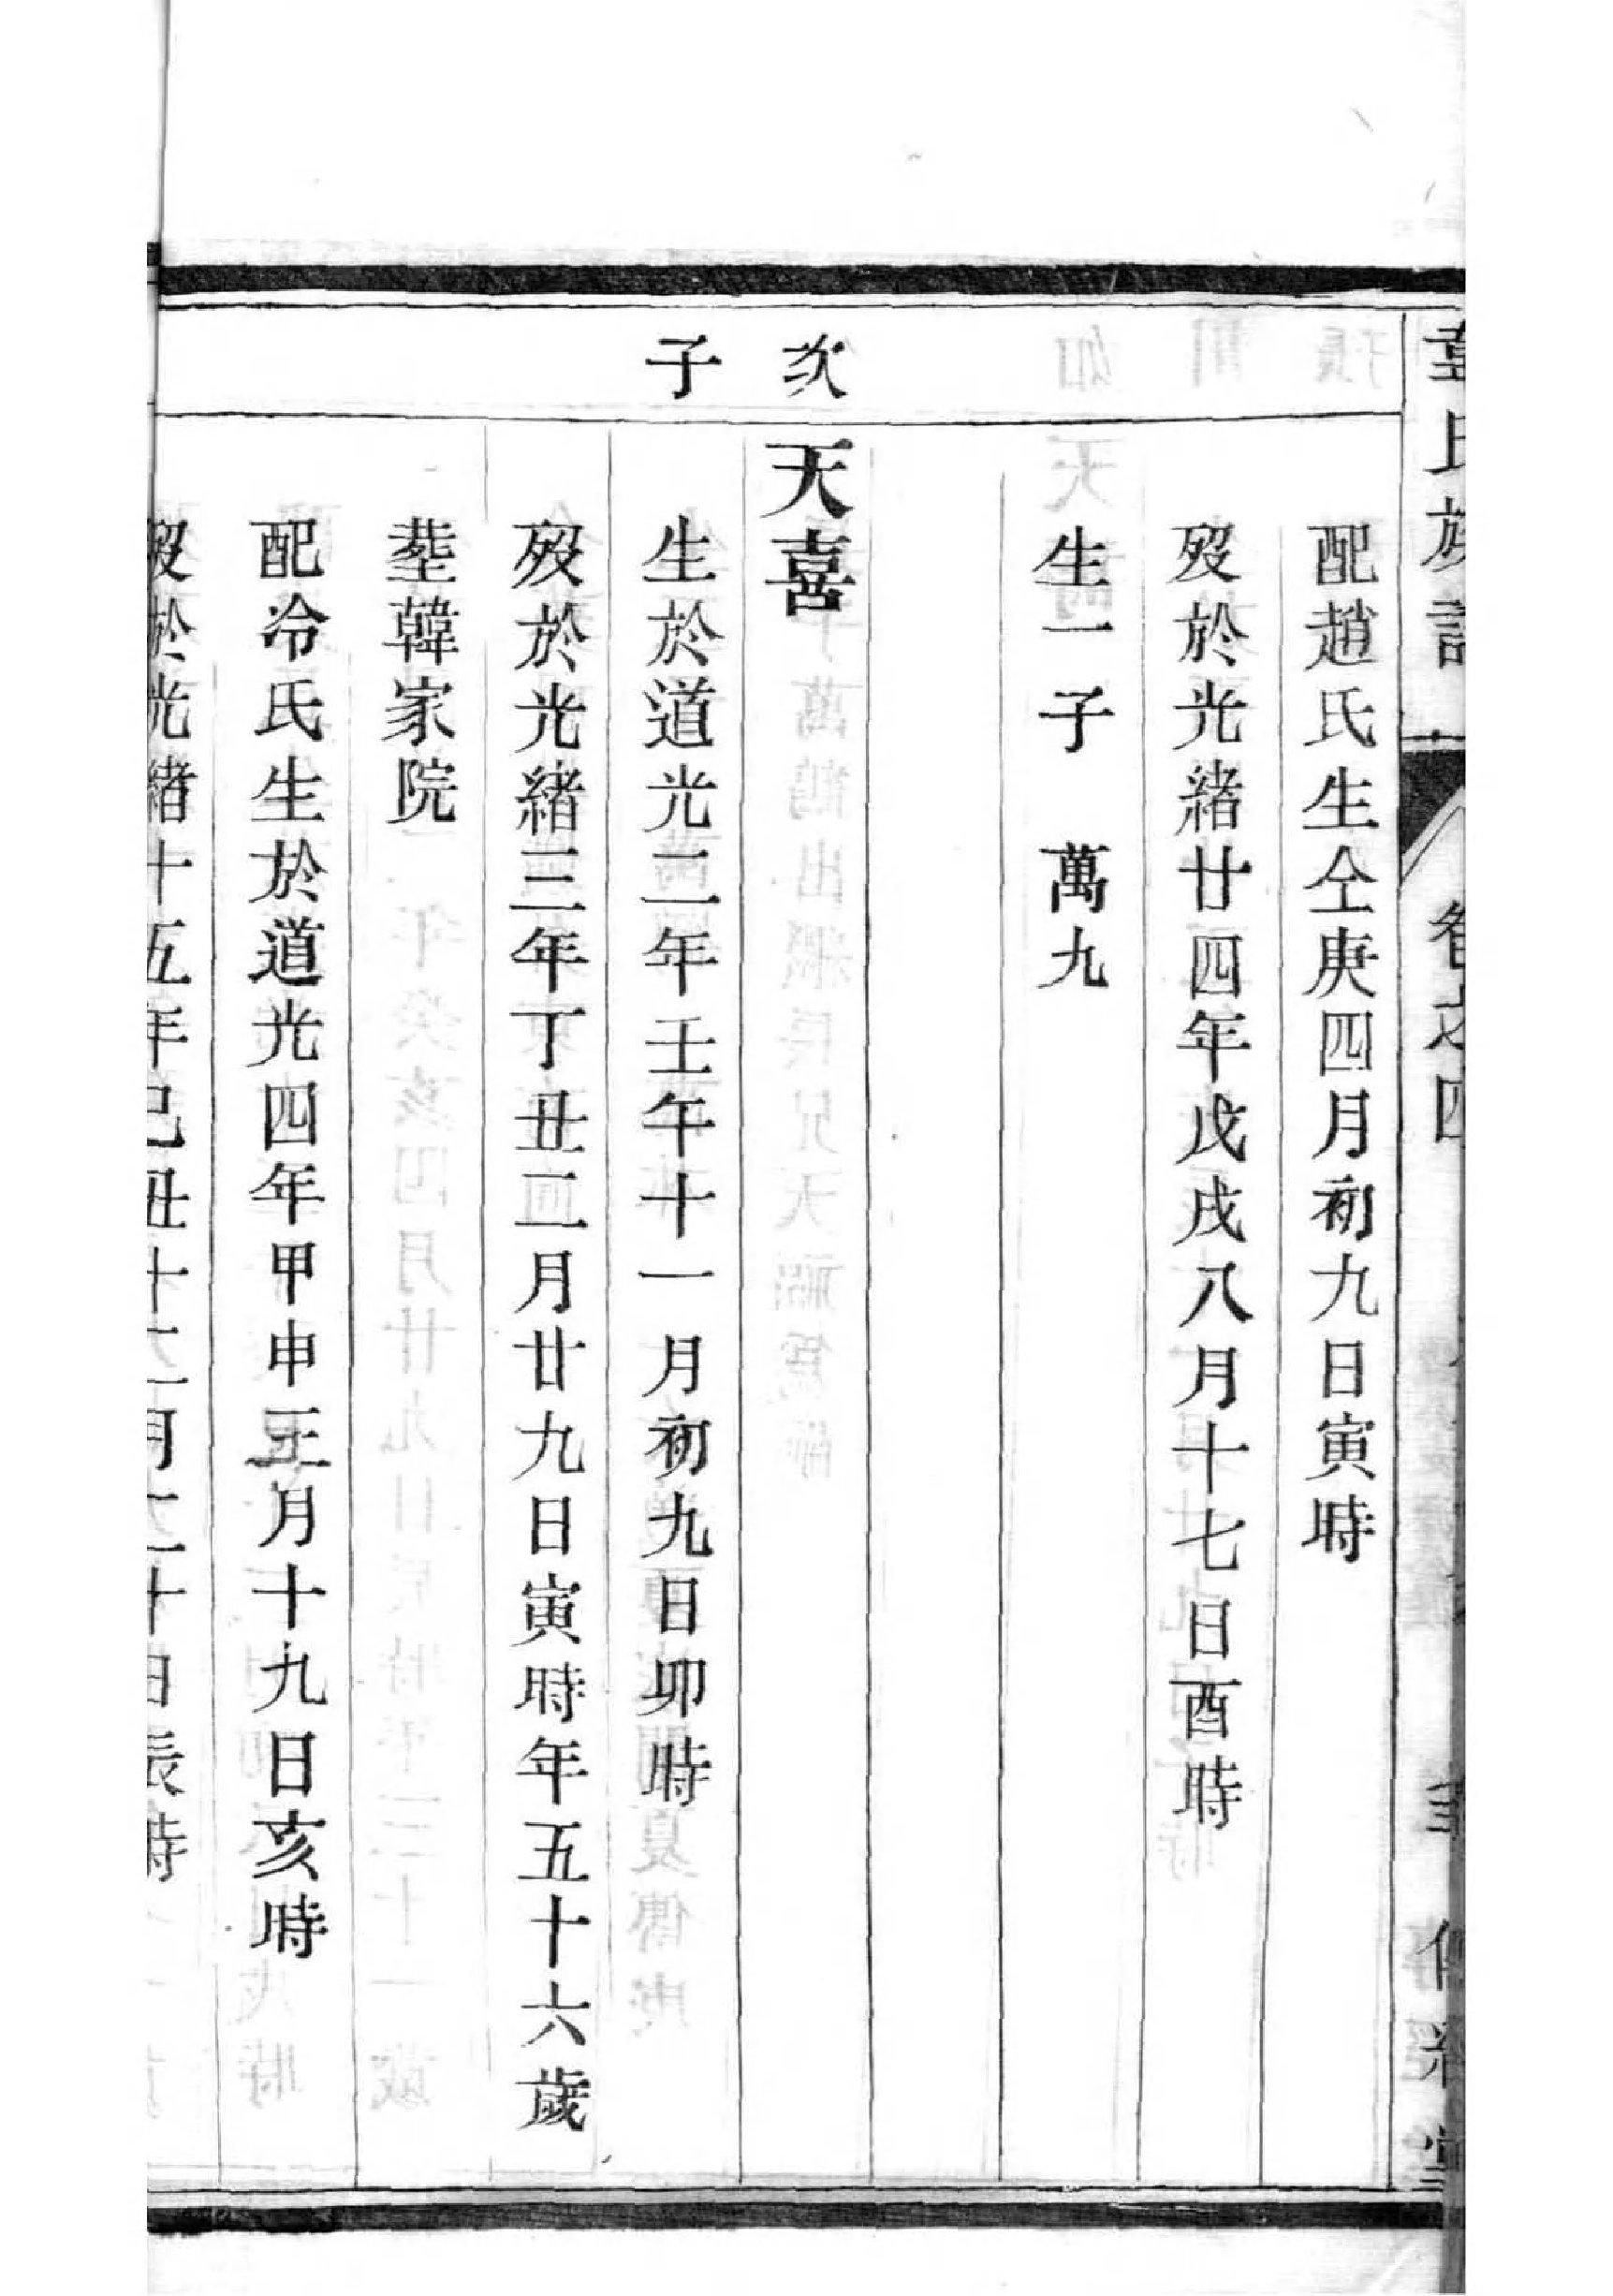 氏族譜
卷之四
配趙氏生仝庚四月初九日寅時
歿於光緒廿四年戊戌八月十七日酉時
生一子 萬九
次子
天喜
生於道光二年壬午十一月初九日卯時
歿於光緒三年丁丑二月廿九日寅時年五十六歲
塟韓家院
配冷氏生於道光四年甲申正月十九日亥時
歿於光緒十五年己丑十二月二十日辰時